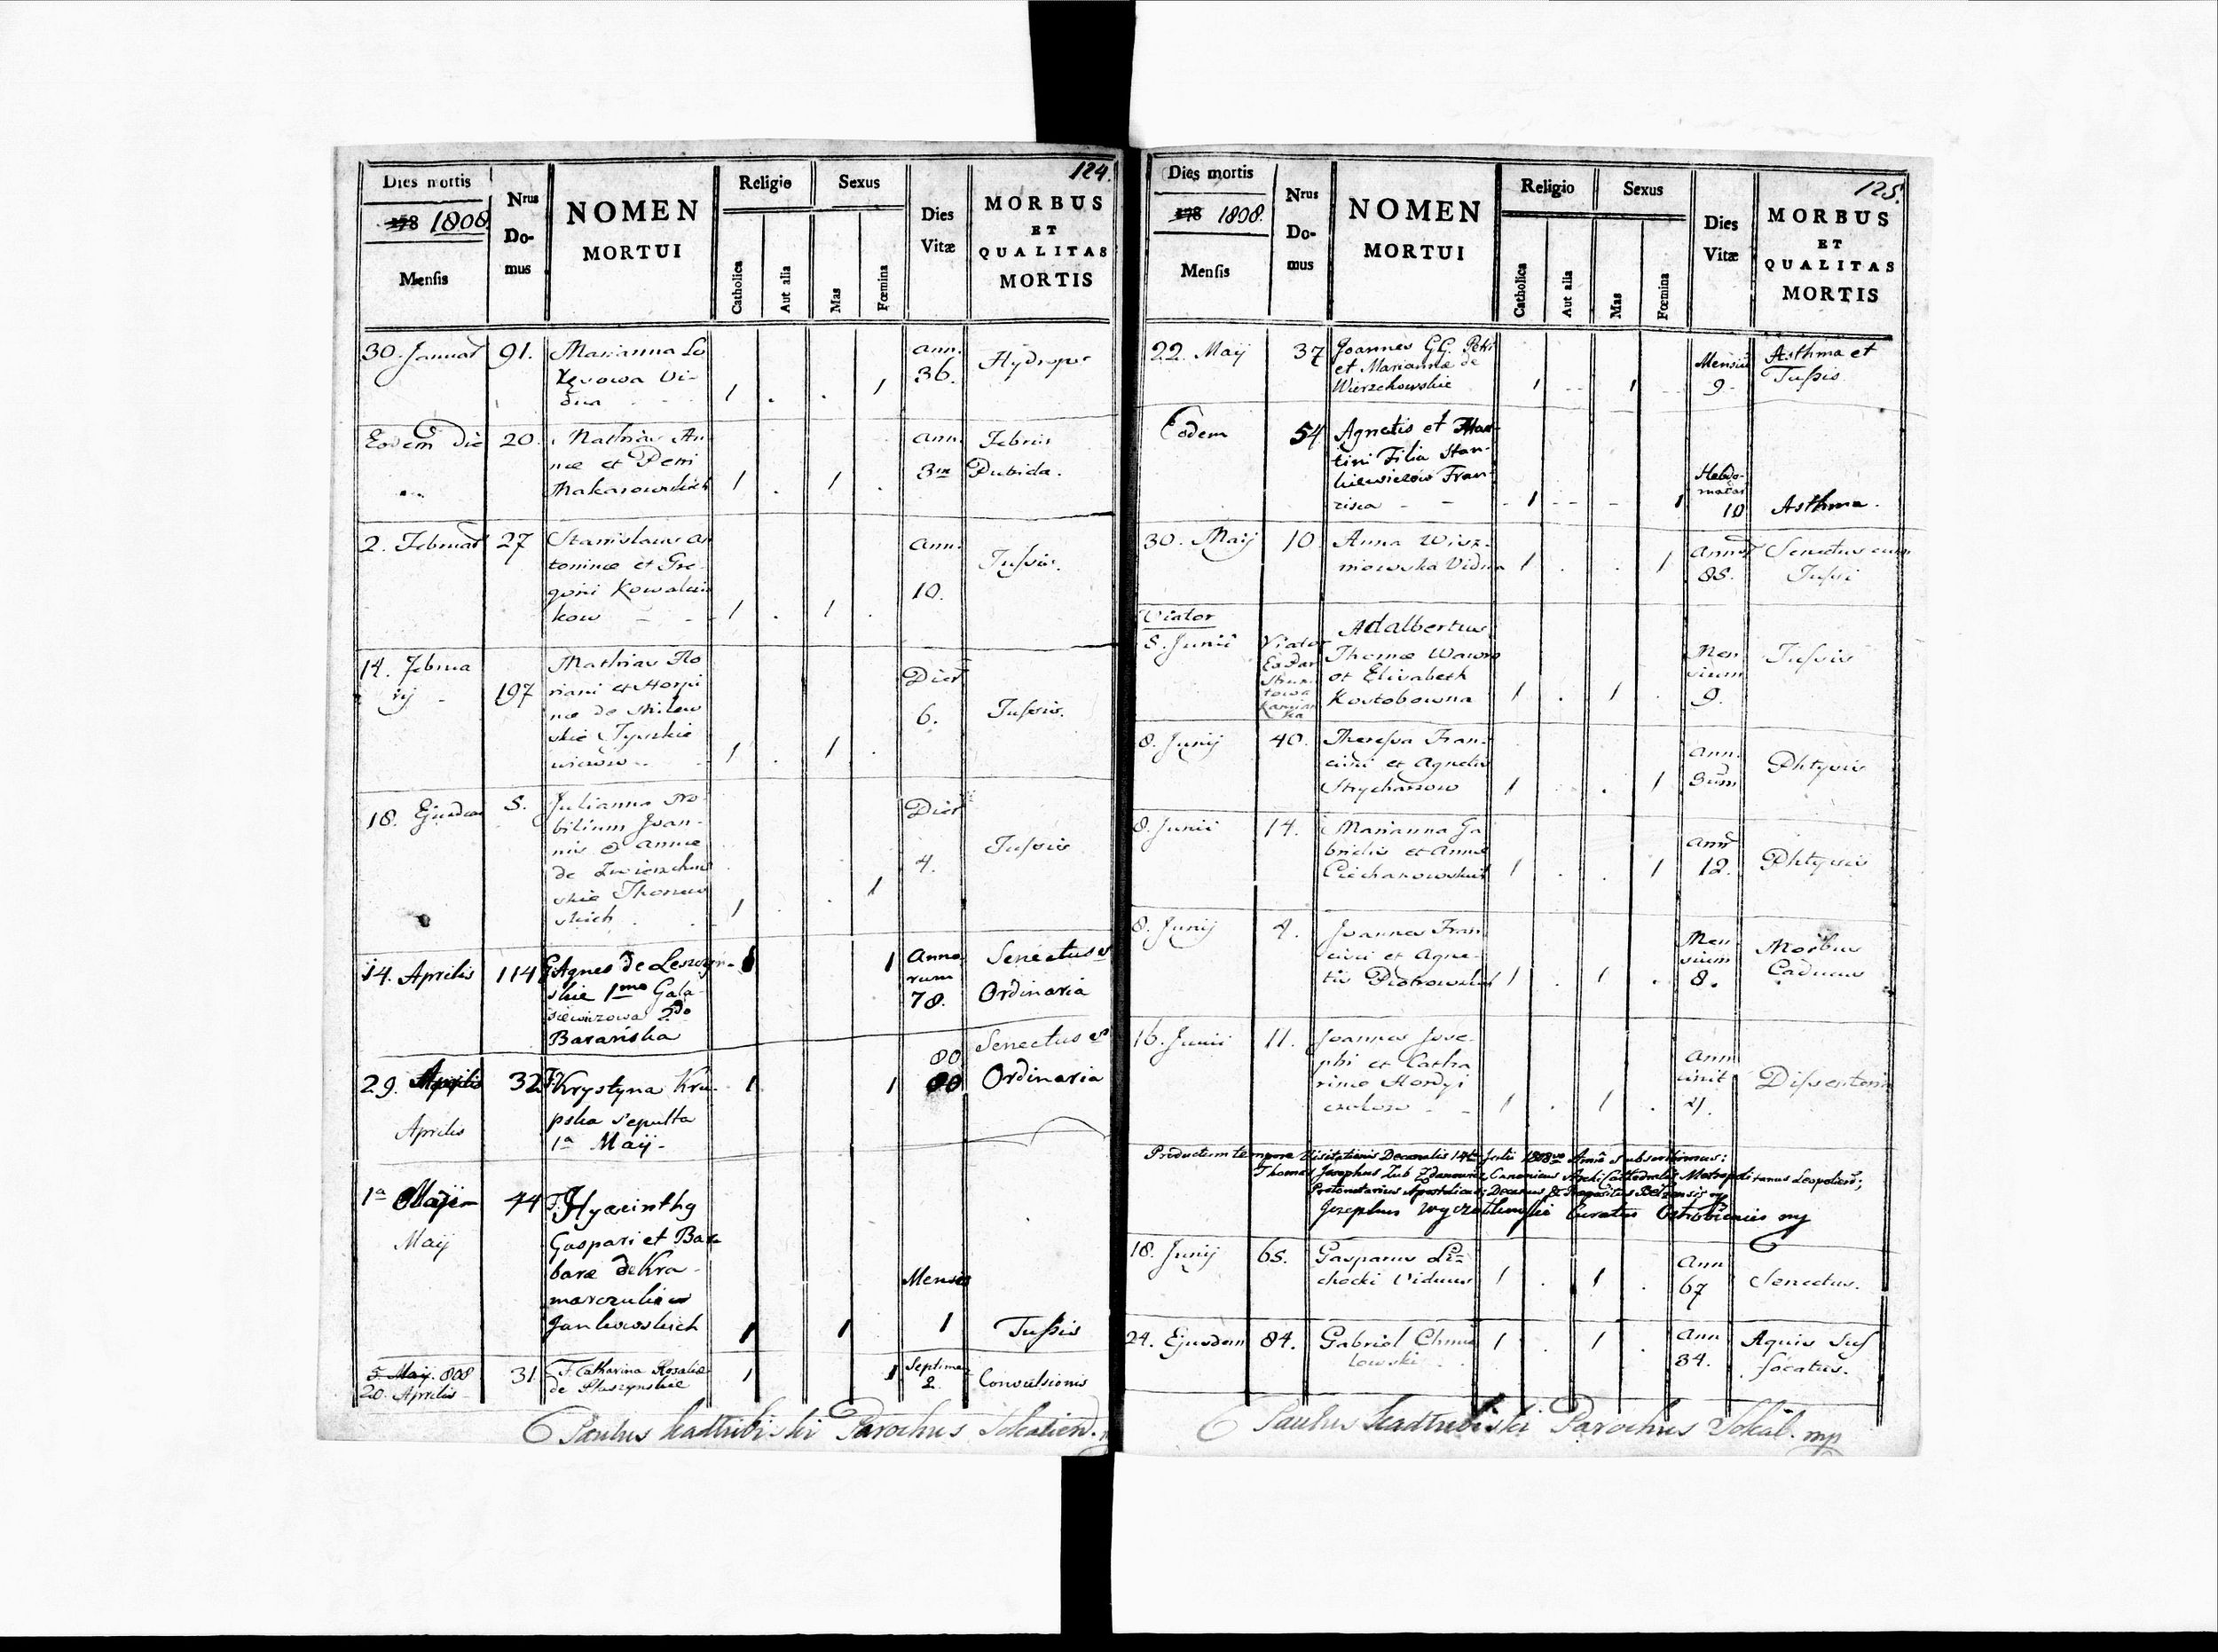 124.
Dies mortis
178 1808.
Mensis
Nrus
Do-
mus
NOMEN
MORTUI
Religio
Catholica
Aut alia
Sexus
Mas
Fœmina
Dies
Vitæ
MORBUS
ET
QUALITAS
MORTIS
30. Januar 91. Marianna Lo
Vi-
dua
1 . . 1
ann.
36.
Hydrops
Eodem die 20. Mathias An
næ et Petri
Makarowskich
1 . 1 .
ann.
3
Febris
Putrida.
2. Februar 27 Stanislaus an
toninæ et Gre-
gorii Kowalczi
kow
1 . 1 .
ann.
10.
Tussis.
14. Februa
rij
197
Mathias Flo
riani et
næ de
skie
1 . 1 .
Dier
6.
Tussis.
18. Ejusdem 5. Julianna No-
bilium Joan-
nis & Annæ
de
skie
skich
1 . . 1
Dier
4.
Tussis
14. Aprilis 114 Agnes de
skie 1mo Gala-
siewiczowa 2do
Barańska
1 1
Anno
rum
78.
Senectus
Ordinaria
29. Aprilis
Aprilis
32 Krystyna Kru-
pska sepulta
1a Maij-
1 1
80
80
Senectus
Ordinaria
1a Maij
Maij
44 Hyacinthg
Gaspari et Bar
baræ de Kra-
marczukiew
Jankowskich
1 1
Mensis
1
Tussis
5. Maij. 808
20. Aprilis
31. F. Catharina Rosalia
de
1 1
Septima
2.
Convulsionis
Paulus Kadłubiski Parochus
125.
Dies mortis
178 1808.
Mensis
Nrus
Do-
mus
NOMEN
MORTUI
Religio
Catholica
Aut alia
Sexus
Mas
Fœmina
Dies
Vitæ
MORBUS
ET
QUALITAS
MORTIS
22. Maij 37 Joannes GG. Petri
et Mariannæ de
Wierzchowskie
1 1
Mensiu
9.
Asthma et
Tussis
Eodem 54 Agnetis et Mar-
tini Filia Stan-
kiewiczow Fran-
cisca
1 1
Hebdo-
madar
10
Asthma.
30. Maij 10. Anna Wisz-
niowska Vidua
1 . . 1
annor
85.
Senectus cum
Tussi
Viator
5. Junii
Viator
Adalbertus
Thomæ Wawro
et Elisabeth
Kostobowna
1 . 1 .
Men
sium
9.
Tussis
8. Junij 40. Theressa Fran-
cisci et Agnetis
Strycharzow
1 . . 1
ann.
3um
Phtysis
8. Junii 14. Marianna Ga
brielis et Annæ
Ciechanowskich
1 . . 1
ann
12.
Phtysis
8. Junij 4. Joannes Fran
cisci et Agne-
tis Piotrowskich
1 . 1 .
Men
sium
8.
Morbus
Caducus
16. Junii 11. Joannes Jose-
phi et Catha
rinæ
1 . 1 .
Ann
Dissenteria
Productum tempore Visitationis Decanalis 14ta Julii 1808vo Anni subscribimus:
Thomas Josephus Zub Zdanowicz Canonicus Archi Cathedralis Metropolitanus Leopolien;
Protonotarius Apostolicus; Decanus & Præpositus Belzensis
Josephus Curatus
18. Junij 65. Gasparus Li=
chocki Viduus
1 . 1 .
Ann
67
Senectus.
24. Ejusdem 84. Gabriel Chmie
lowski
1 . 1 .
Ann
34.
Aquis Suf
focatus.
Paulus Kadłubiski Parochus Sokal. mp